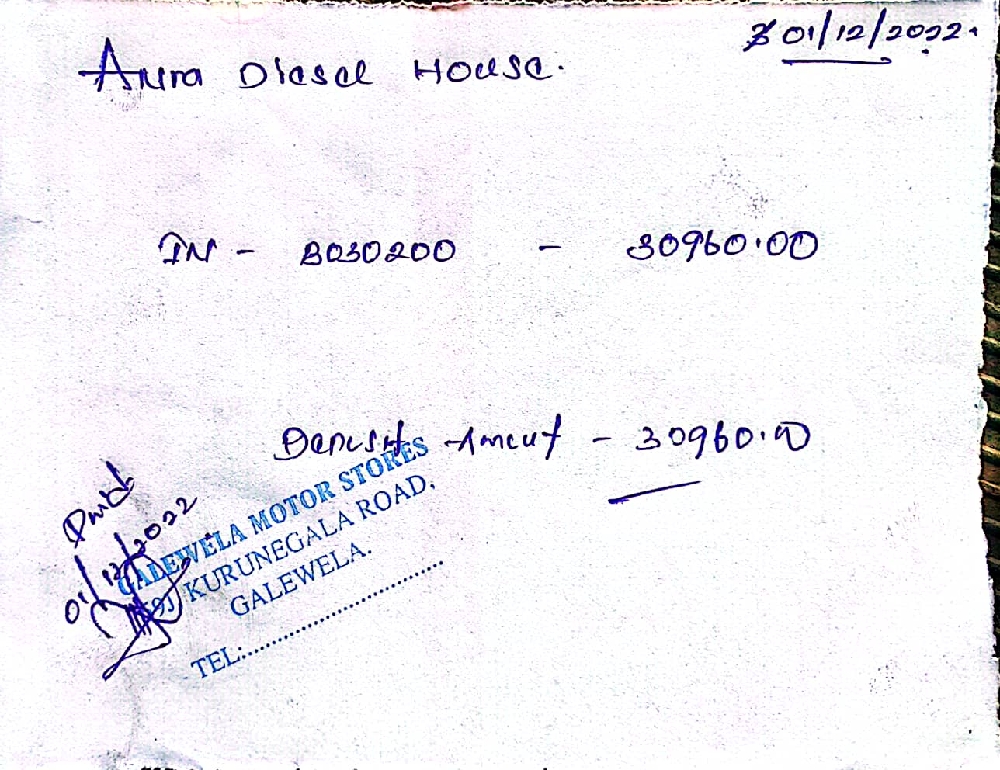 01/12/2022.
Aura Diesel House.
IN - B030200 - 30960.00
Deposit Amout - 30960.00
Paid
01/12/2022
GALEWELA MOTOR STORES
KURUNEGALA ROAD,
GALEWELA.
TEL:..............................